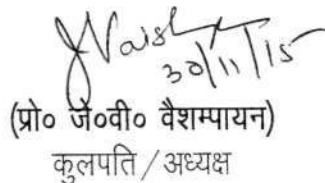 JVaish
30/11/15
(प्रो० जे०वी० वैशम्पायन)
कुलपति / अध्यक्ष